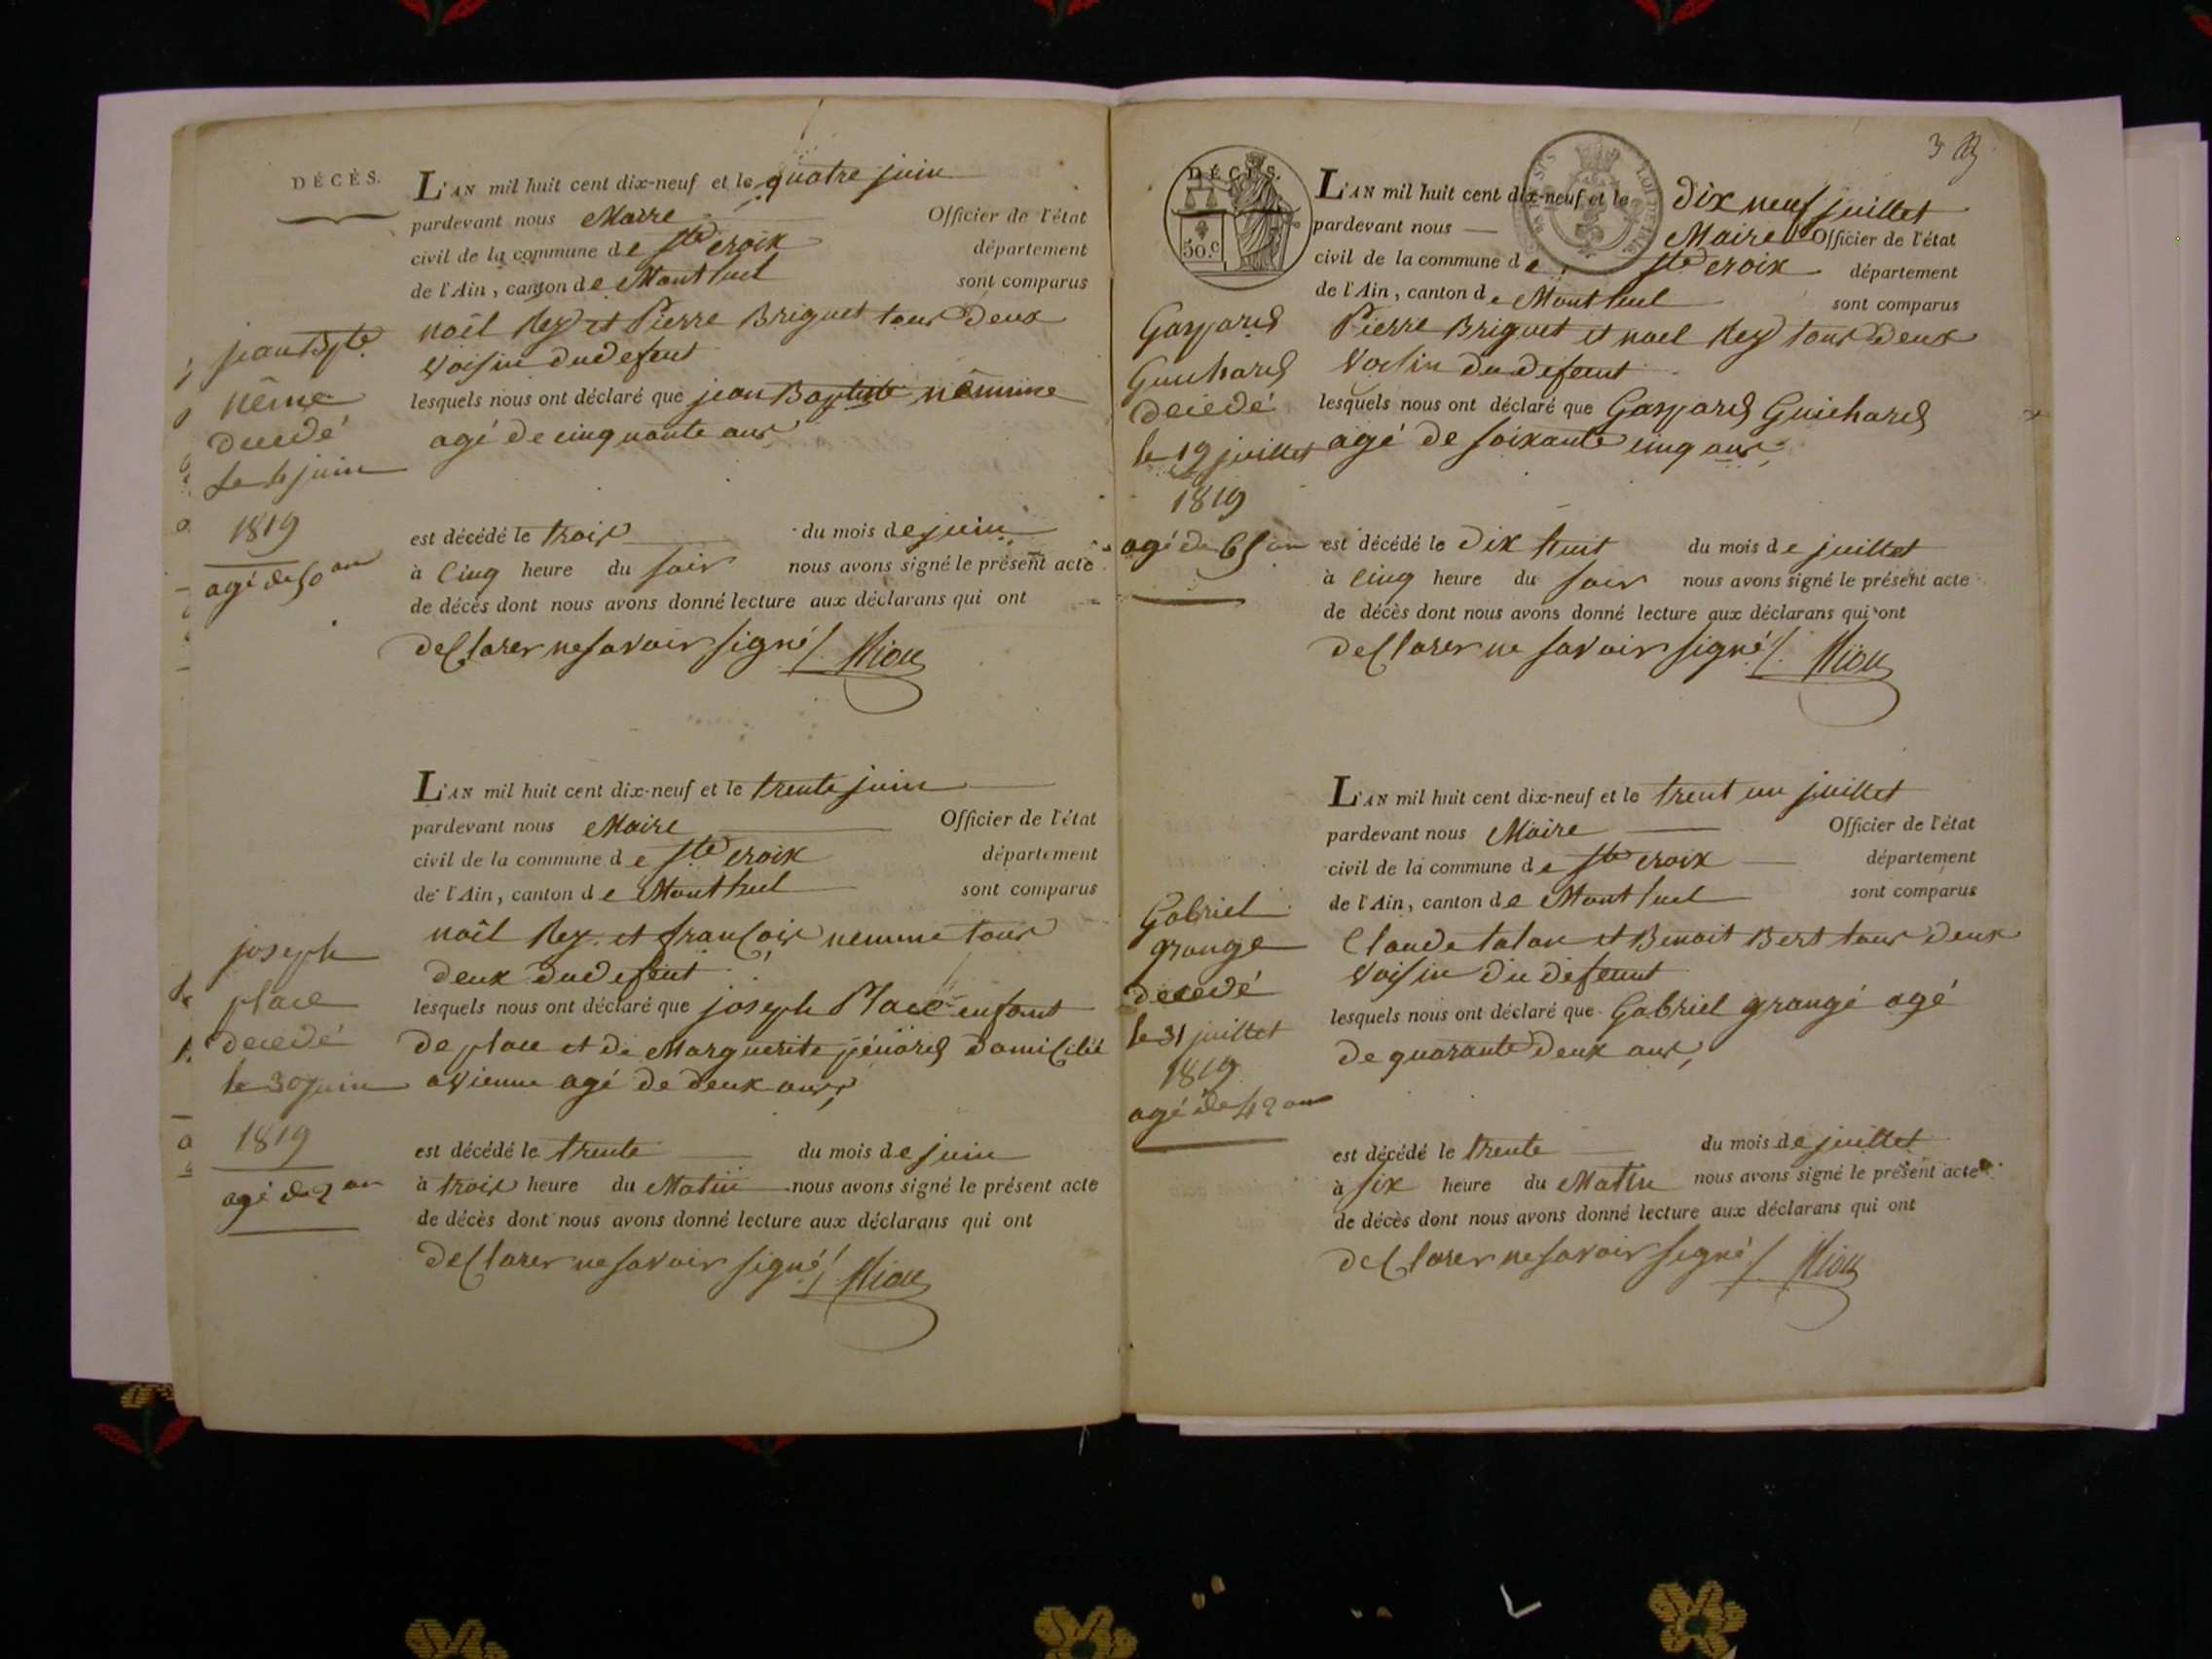 DÉCÈS.
L'AN mil huit cent dix-neuf et le quatre juin
pardevant nous Maire Officier de l'état
civil de la commune de Ste croix département
de l'Ain, canton de Montluel sont comparus
noël Rey et Pierre Briguet tous deux
voisin du defunt
lesquels nous ont déclaré que jean Baptiste nêmme
agé de cinquante ans
est décédé le trois du mois de juin
à cinq heure du soir nous avons signé le présent acte
de décès dont nous avons donné lecture aux déclarans qui ont
declarer ne savoir signé
jean Bpte
nême
decedé
Le 4 juin
1819
agé de 50 an
L'AN mil huit cent dix-neuf et le trente juin
pardevant nous Maire Officier de l'état
civil de la commune de Ste croix département
de l'Ain, canton de Montluel sont comparus
noël Rey et françois nemme tous
deux du defunt
lesquels nous ont déclaré que joseph Place enfant
de place et de Marguerite domicilié
a vienne agé de deux ans
est décédé le trente du mois de juin
à trois heure du Matin nous avons signé le présent acte
de décès dont nous avons donné lecture aux déclarans qui ont
declarer ne savoir signé
joseph
place
decedé
le 30 juin
1819
agé de 2 an
3
DÉCÈS.
50.c
L'AN mil huit cent dix-neuf et le dix neuf juillet
pardevant nous Maire Officier de l'état
civil de la commune de Ste croix département
de l'Ain, canton de Montluel sont comparus
Pierre Briguet et noel Rey tous deux
voisin du defunt
lesquels nous ont déclaré que Gaspard Guichard
agé de soixante cinq ans
est décédé le dix huit du mois de juillet
à cinq heure du soir nous avons signé le présent acte
de décès dont nous avons donné lecture aux déclarans qui ont
declarer ne savoir signé
Gaspard
Guichard
decedé
le 19 juillet
1819
agé de 65 an
L'AN mil huit cent dix-neuf et le trent un juillet
pardevant nous Maire Officier de l'état
civil de la commune de Ste croix département
de l'Ain, canton de Montluel sont comparus
Claude talon et Benoit Bert tous deux
voisin du defunt
lesquels nous ont déclaré que Gabriel grangé agé
de quarante deux ans
est décédé le trente du mois de juillet
à six heure du Matin nous avons signé le présent acte
de décès dont nous avons donné lecture aux déclarans qui ont
declarer ne savoir signé
Gabriel
grange
decedé
le 31 juillet
1819
agé de 42 an